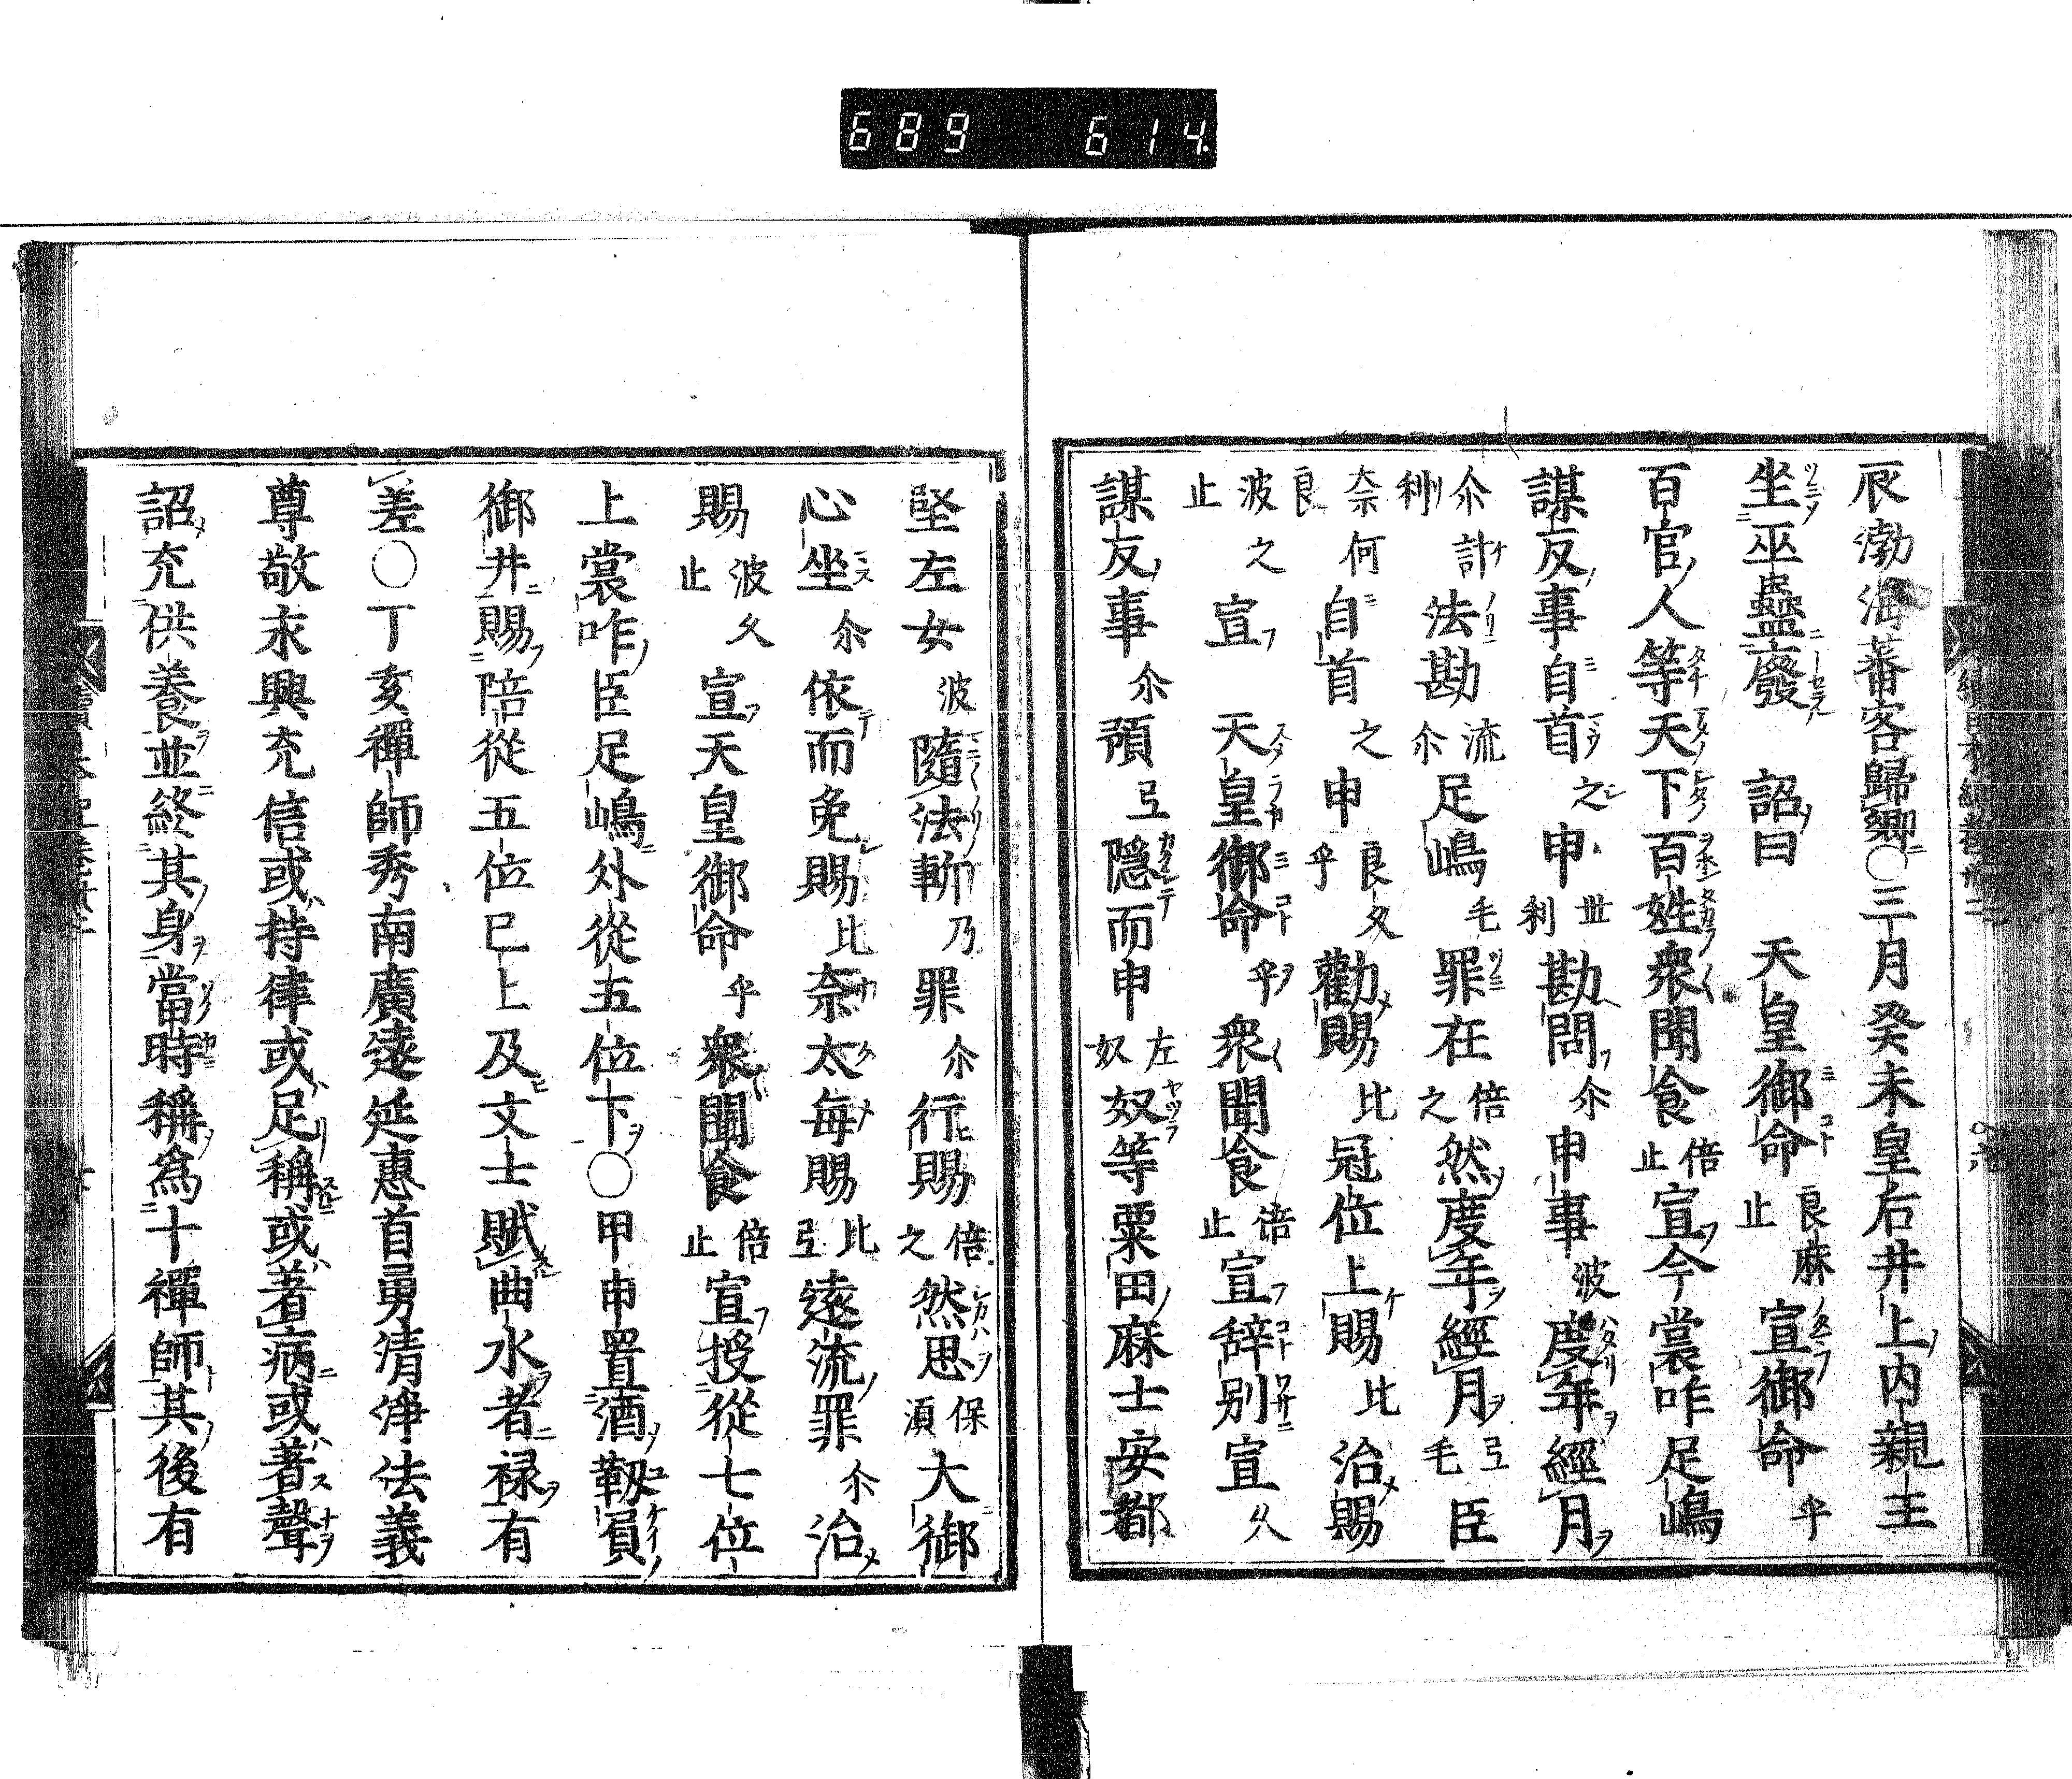 689 614.
辰渤海蕃客歸郷○三月癸未皇后井上內親王
坐巫蠱廢 詔曰 天皇御命良麻止宣御命乎
百官人等天下百姓衆聞食倍止宣今裳咋足嶋
謀反事自首之申世利勘問尒申事波度年經月
尒計利法勘流尒足嶋毛罪在倍之然度年經月弖毛臣
奈何良自首之申良久乎勸賜比冠位上賜比治賜
波久止宣天皇御命乎衆聞食倍止宣辞別宣久
謀反事尒預弖隱而申左奴奴等粟田麻士安都
堅左女波隨法斬乃罪尒行賜倍之然思保須大御
心坐尒依而免賜比奈太每賜比弖遠流罪尒治
賜波久止宣天皇御命乎衆聞食倍止宣授從七位
上裳咋臣足嶋外從五位下○甲申置酒靱負
御井賜陪從五位已上及文士賦曲水者禄有
差○丁亥禪師秀南廣達延惠首勇清淨法義
尊敬永興充信或持律或足稱或著病或著聲
詔充供養並終其身當時稱爲十禪師其後有